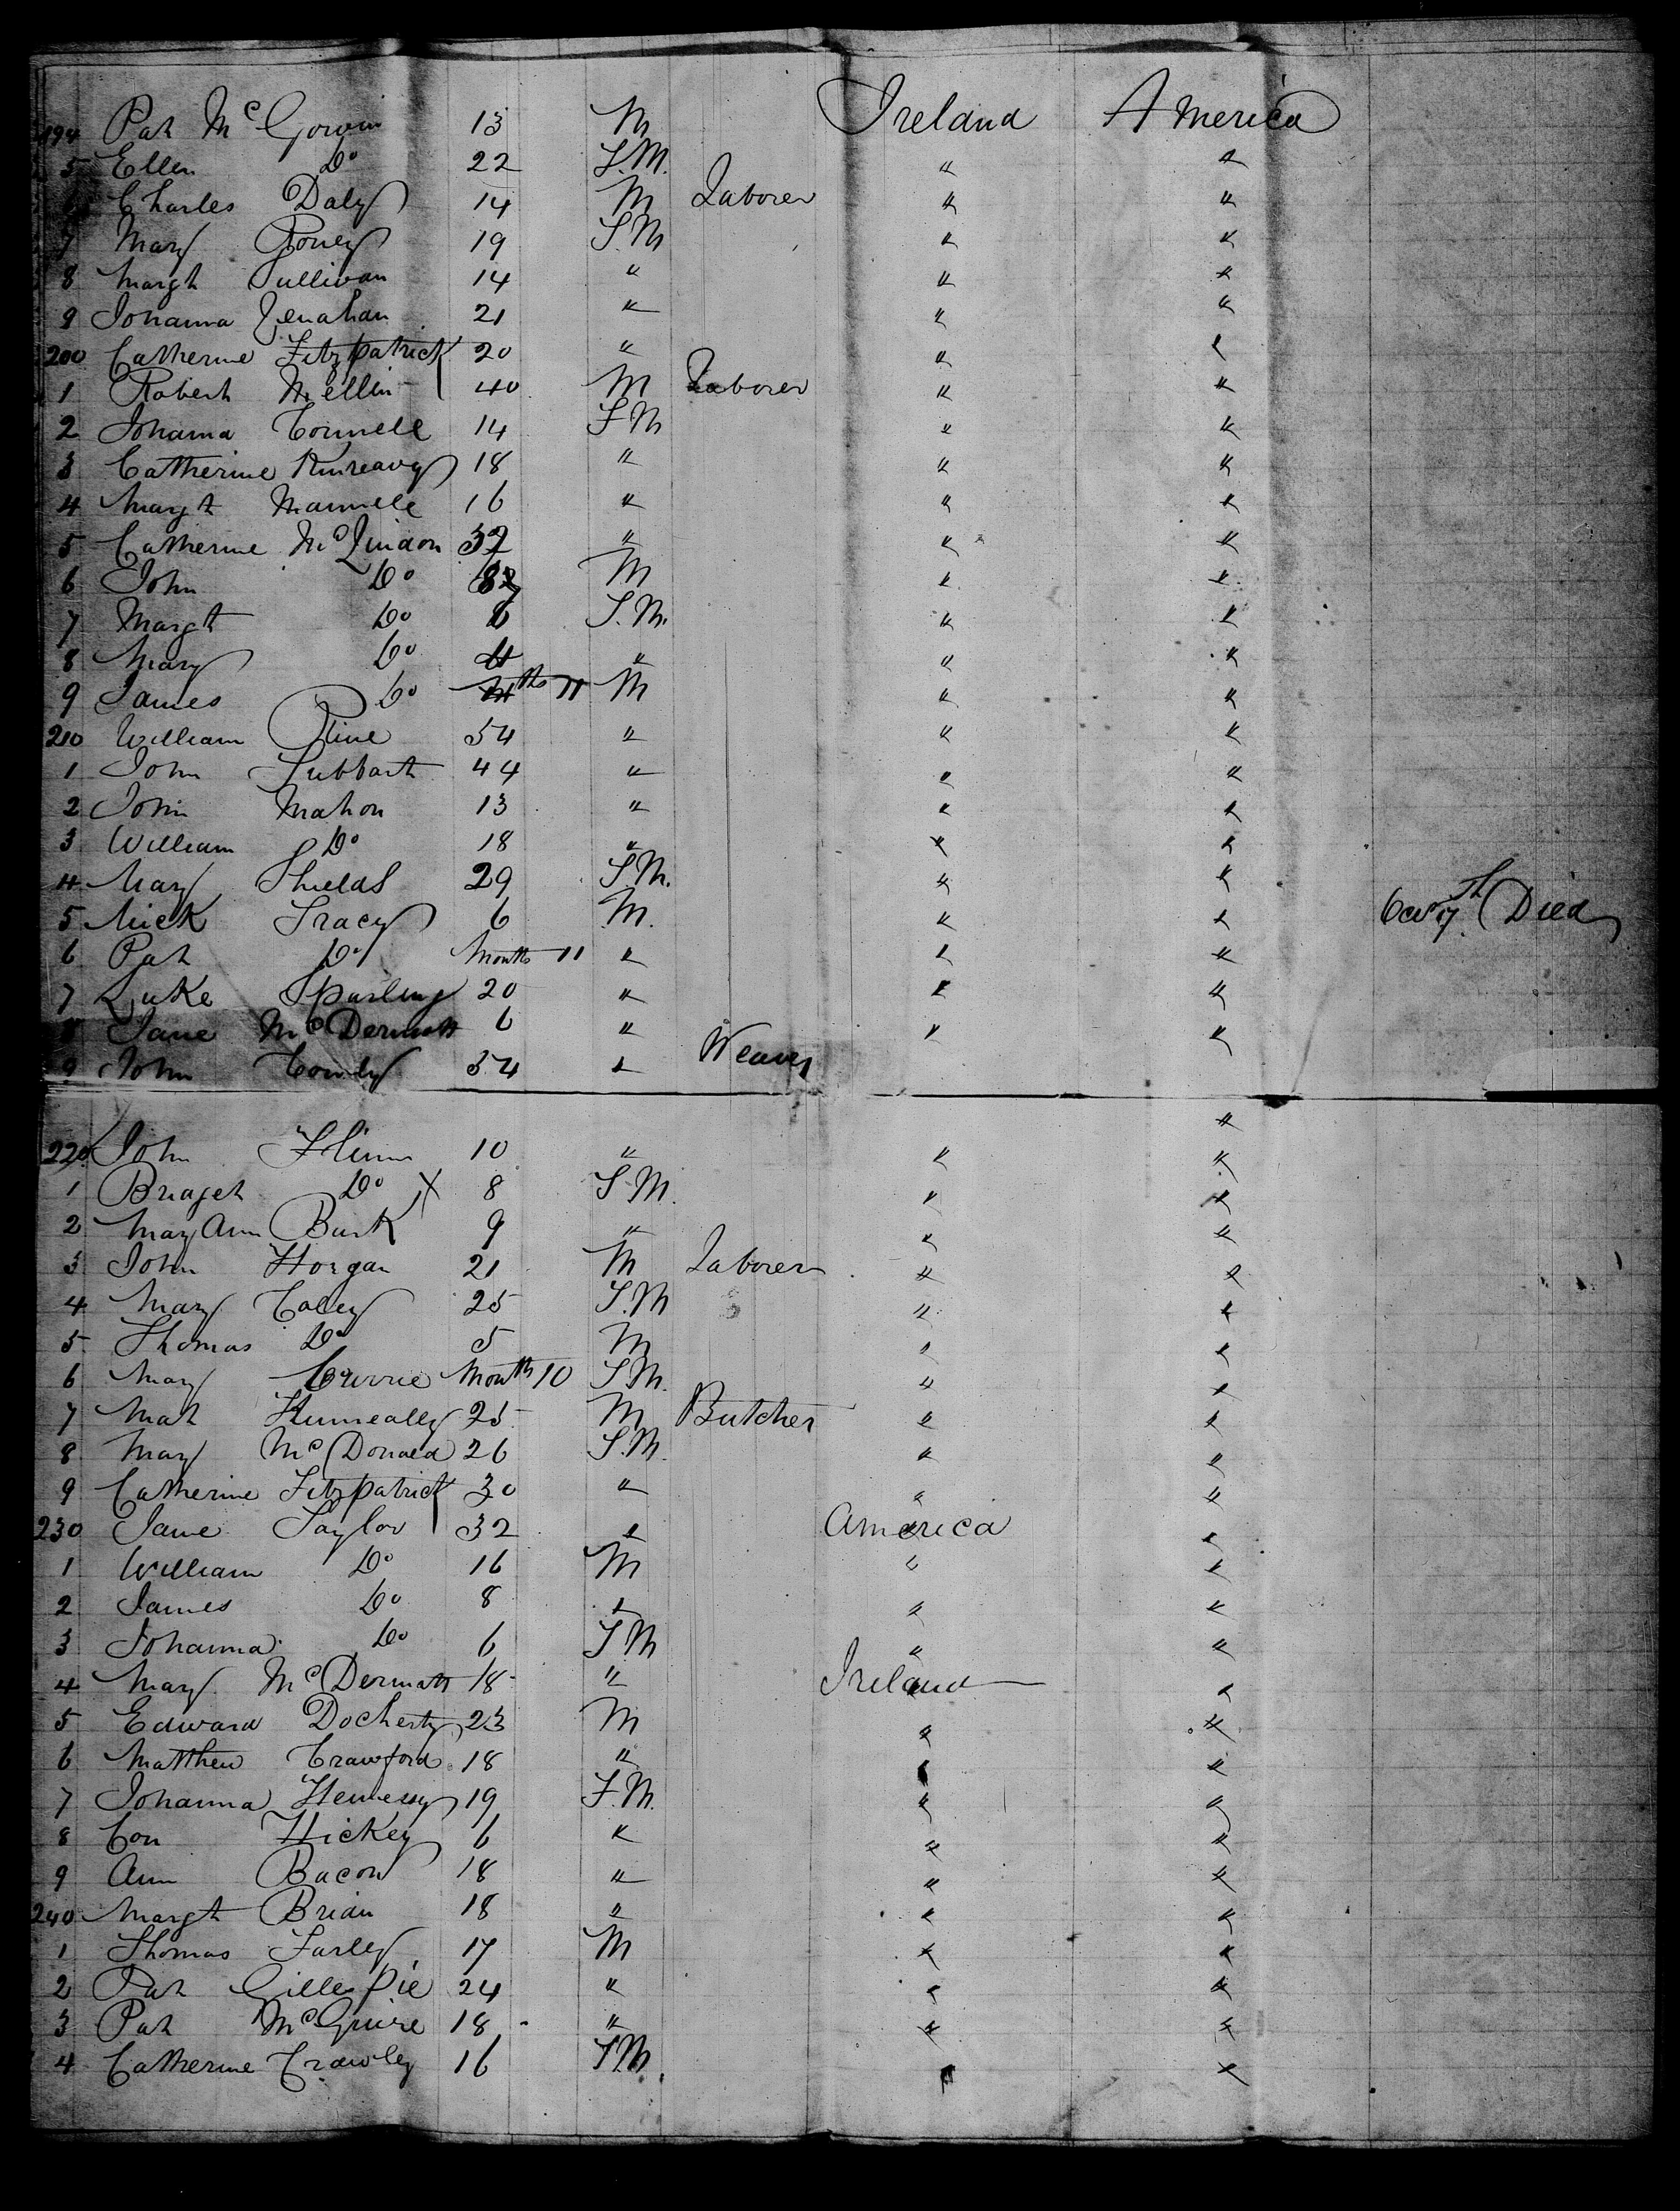 194 Pat McGowin 13 M Ireland America
5 Ellen Do 22 F.M. " "
Charles Daly 14 M Laborer " "
7 Mary 19 F.M " "
8 Margt Sullivan 14 " " "
9 Johanna Lenahan 21 " " "
200 Catherine Fitzpatrick 20 " " "
1 Robert Mellin 40 M Laborer " "
2 Johanna Connell 14 F M " "
3 Catherine Kinreavy 18 " " "
4 Margt Mannell 16 " " "
5 Catherine McLindon 32 " " "
6 John Do M " "
7 Margt Do 6 F.M. " "
8 Mary Do 4 " " "
9 James Do Mths 11 M " "
210 William Rine 54 " " "
1 John Hubbart 44 " " "
2 John Mahon 13 " " "
3 William Do 18 " " "
4 Mary Shields 29 F.M. " "
5 Mick Tracy 6 M. " " Died
6 Pat Do Months 11 " " "
7 Luke Sparling 20 " " "
8 Jane McDermott 6 " " "
9 John Conly 34 " Weaver
"
220 John Flinn 10 " " "
1 Bridget Do X 8 F M. " "
2 Mary Ann Burk 9 " " "
3 John Horgan 21 M Laborer " "
4 Mary Cacey 25 F.M " "
5 Thomas Do 5 M " "
6 Mary Currie Month 10 F.M. " "
7 Mat Kinneally 25 M Butcher " "
8 Mary McDonald 26 F.M. " "
9 Catherine Fitzpatrick 30 " " "
230 Jane Taylor 32 " America "
1 William Do 16 M " "
2 James Do 8 " " "
3 Johanna Do 6 F M " "
4 Mary McDermott 18 " Ireland "
5 Edward Docherty 23 M " "
6 Matthew Crawford 18 " " "
7 Johanna Hennessy 19 F.M. " "
8 Con Hickey 6 " " "
9 Ann Bacon 18 " " "
240 Margt Brian 18 " " "
1 Thomas Farley 17 M " "
2 Pat Gillespie 24 " " "
3 Pat McGuire 18 " " "
4 Catherine Crawley 16 F.M. " "